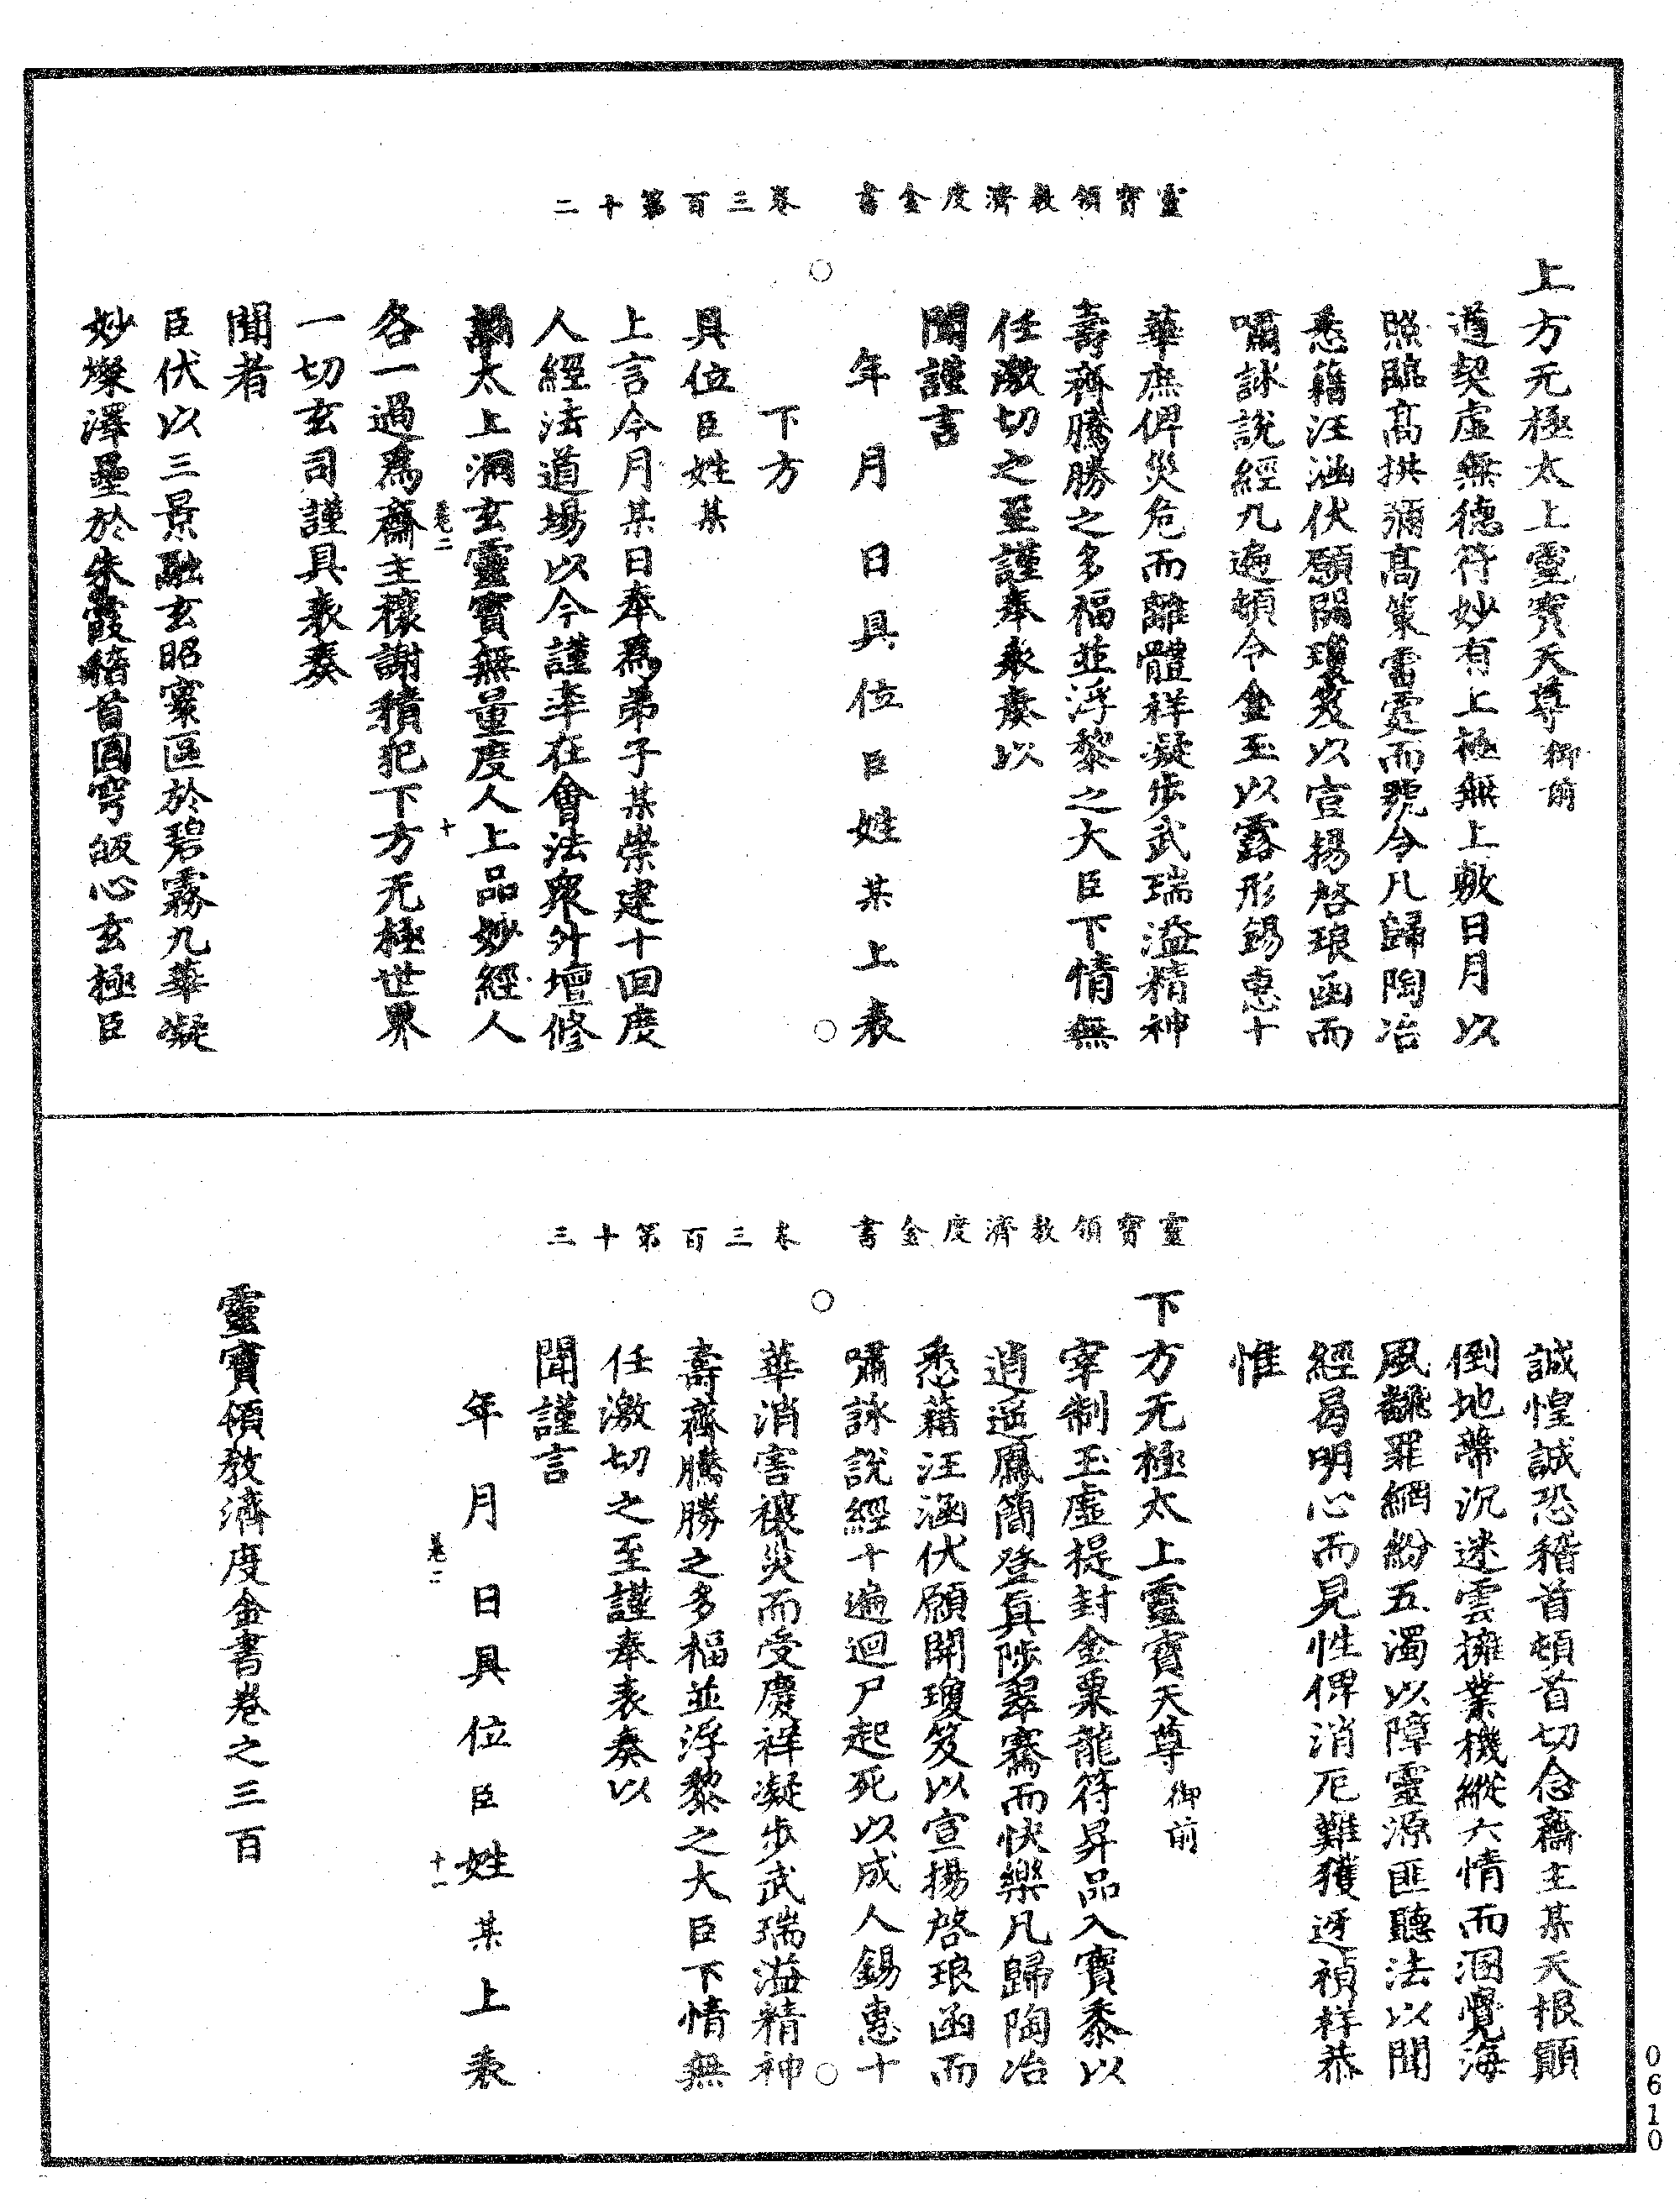 靈寶領教濟度金書　卷三百第十二
上方无極太上靈寶天尊御前
道契虛無德符妙有上極無上敷日月以
照臨高拱彌高策雷霆而號令凡歸陶冶
悉藉汪涵伏願開瓊笈以宣揚啓琅函而
嘯詠說經九遍頓令金玉以露形錫惠十
華庶俾災危而離體祥凝步武瑞溢精神
壽齊騰勝之多福並浮黎之大臣下情無
任激切之至謹奉表奏以
聞謹言
年　月　日具位臣姓某上表
下方
具位臣姓某
上言今月某日奉爲弟子某崇建十回度
人經法道場以今謹率在會法衆外壇修
誦太上洞玄靈寶無量度人上品妙經人
卷二　十
各一過爲齋主禳謝積犯下方无極世界
一切玄司謹具表奏
聞者
臣伏以三景融玄昭寰區於碧霧九華凝
妙燦澤壘於朱霞稽首圓穹皈心玄極臣
靈寶領教濟度金書　卷三百第十三
誠惶誠恐稽首頓首切念齋主某天根顚
倒地蔕沉迷雲擁業機縱六情而涸覺海
風飜罪網紛五濁以障靈源匪聽法以聞
經曷明心而見性俾消厄難獲迓禎祥恭
惟
下方无極太上靈寶天尊御前
宰制玉虛提封金粟龍符昇品入寶黍以
逍遥鳳簡登真陟翠騫而快樂凡歸陶冶
悉藉汪涵伏願開瓊笈以宣揚啓琅函而
嘯詠說經十遍迴尸起死以成人錫惠十
華消害禳災而受慶祥凝步武瑞溢精神
壽齊騰勝之多福並浮黎之大臣下情無
任激切之至謹奉表奏以
聞謹言
年　月　日具位臣姓某上表
卷二　十一
靈寶領教濟度金書卷之三百
0610